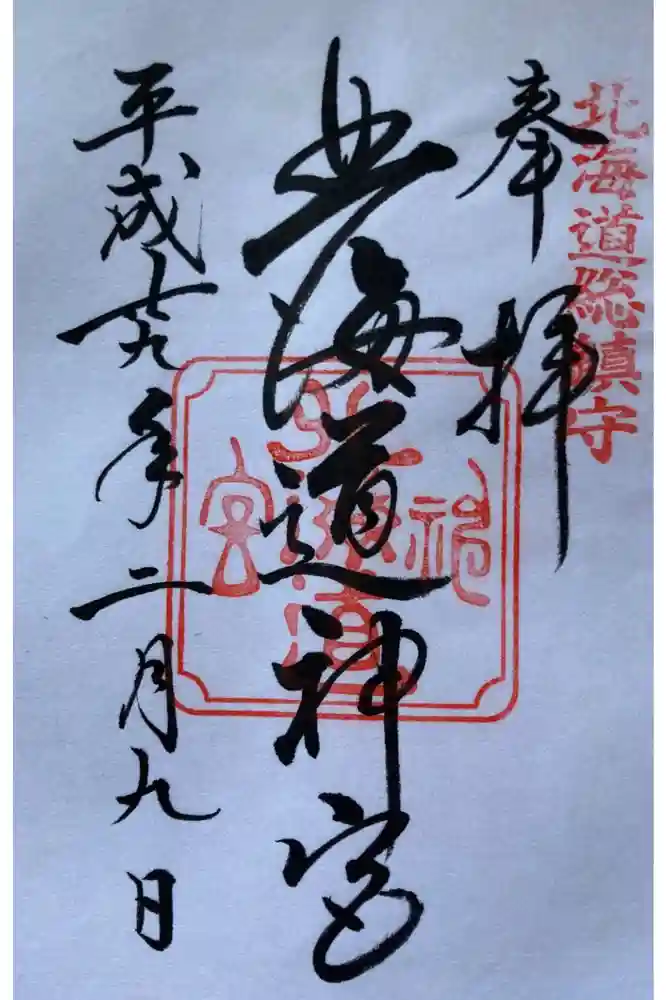 北海道総鎮守
奉拝
北海道神宮
北海道神宮
平成十九年二月九日